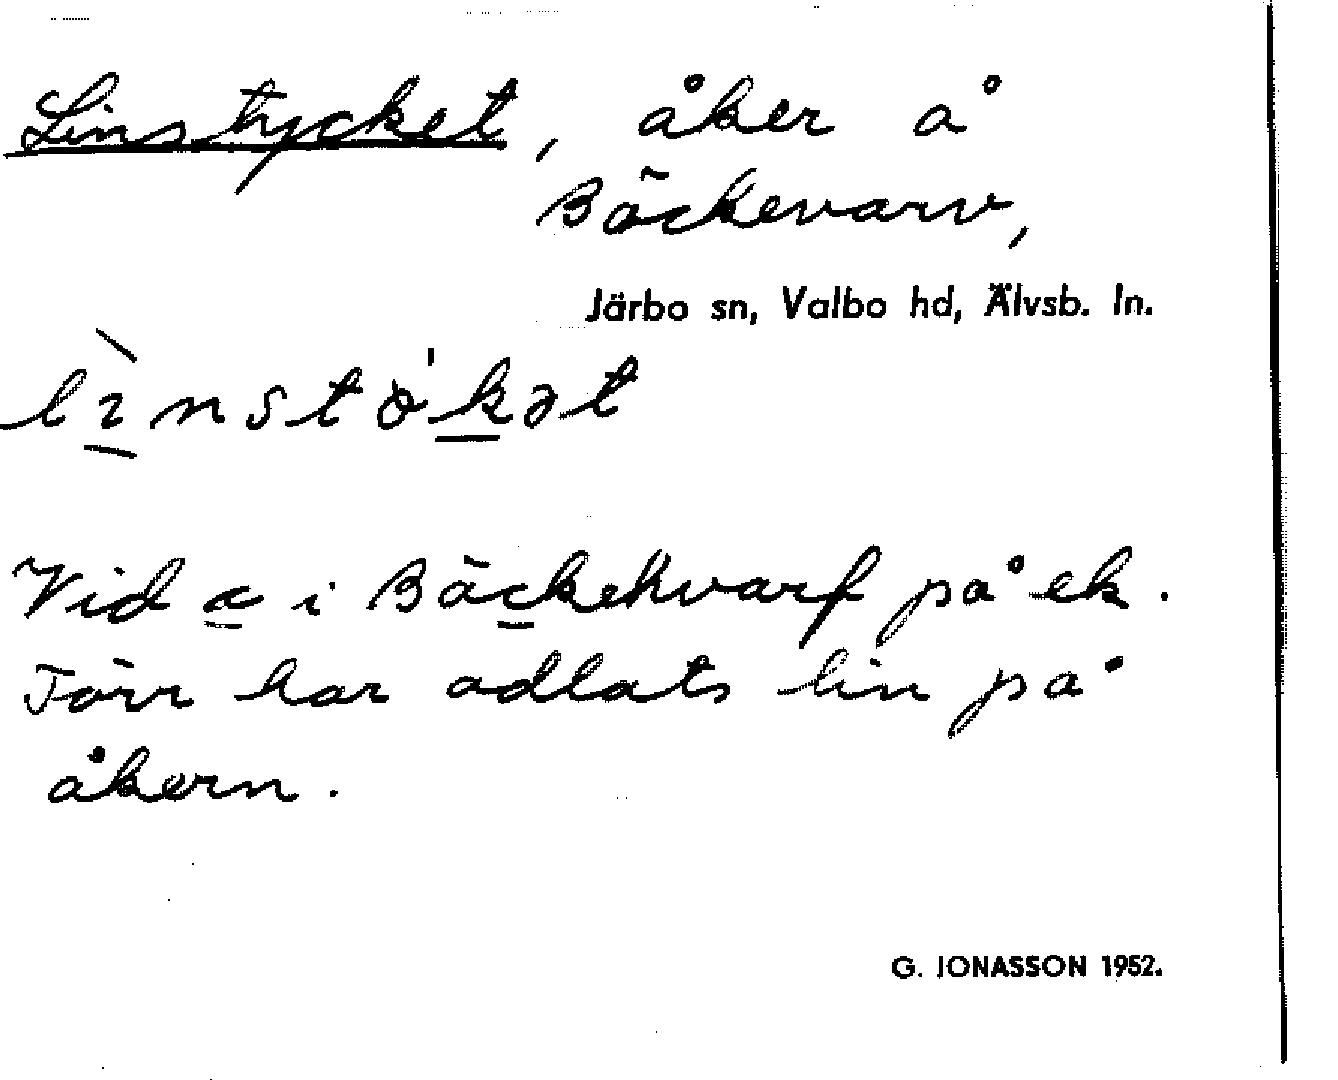 Linstycket, åker å
Bäckevarv,
Järbo sn, Valbo hd, Älvsb. ln.
lìnstö'kət
Vid c i Bäckehvarf på ek.
Förr har odlats lin på
åkern.
G. JONASSON 1952.